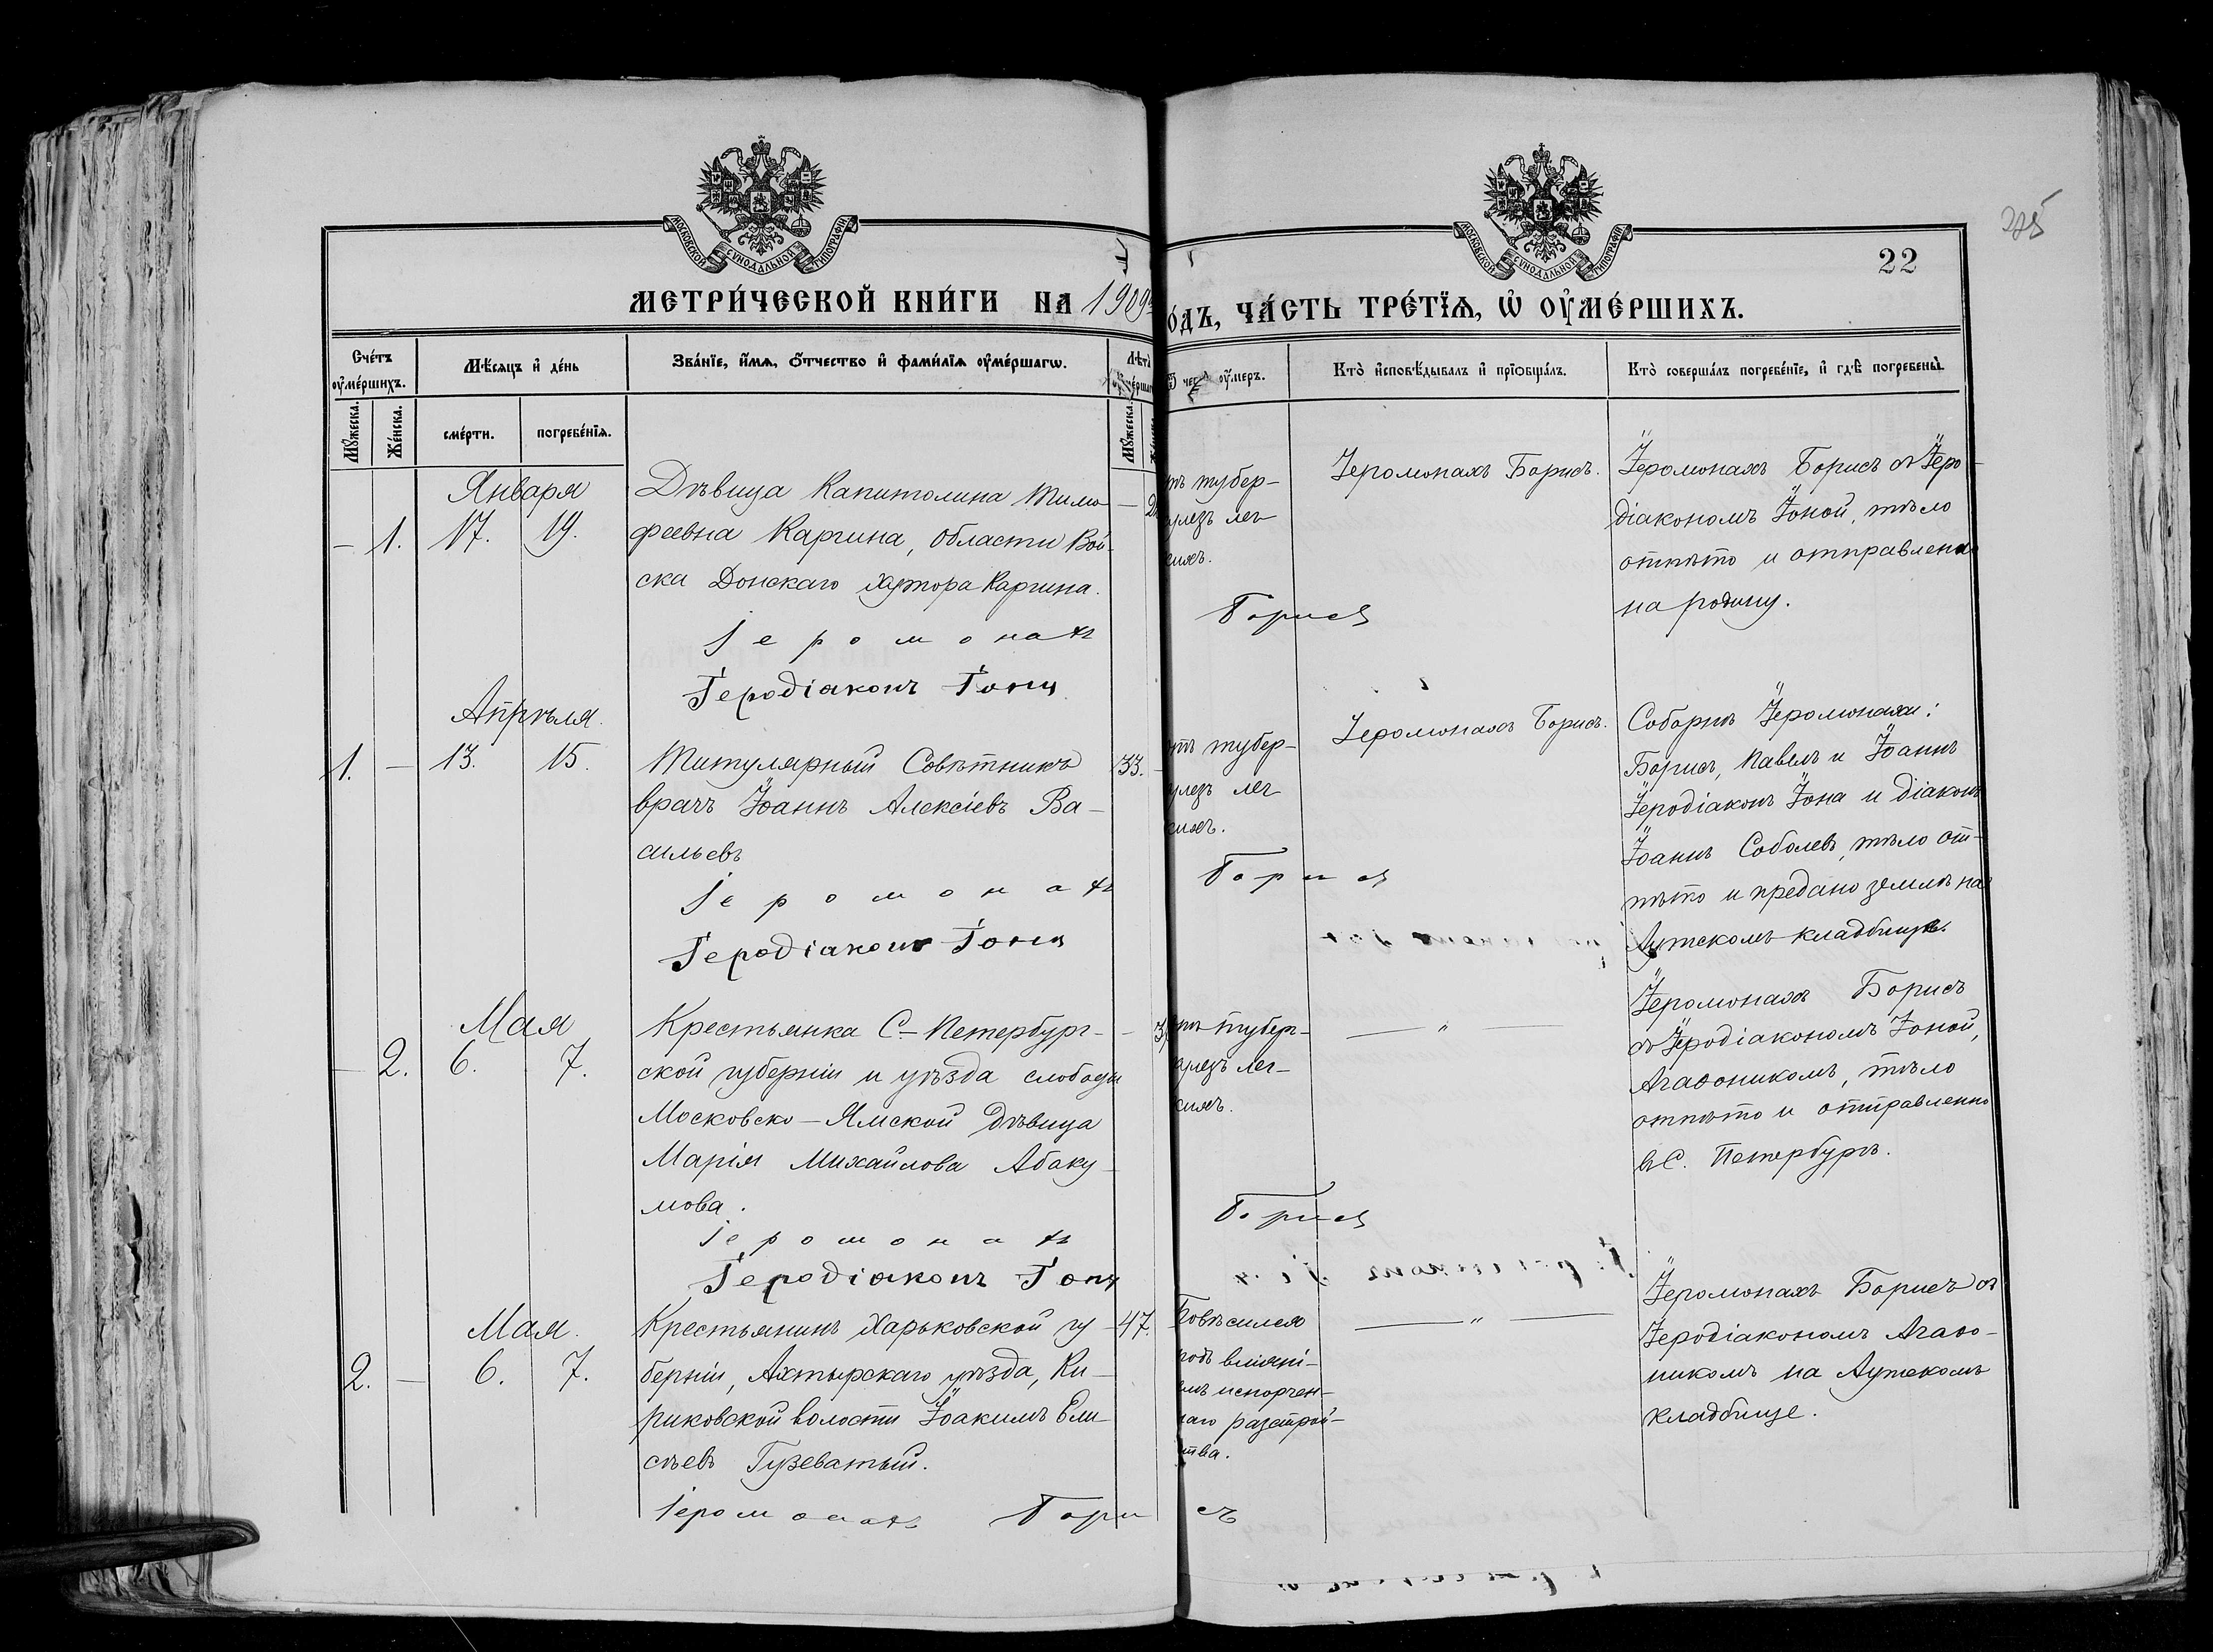 МОСКОВСКОЙ СѴНОДАЛЬНОЙ ТИПОГРАФІИ
МОСКОВСКОЙ СѴНОДАЛЬНОЙ ТИПОГРАФІИ
225
22
МЕТРИ́ЧЕСКОЙ КНИ́ГИ НА 1909
ОДЪ, ЧА́СТЬ ТРЕ́ТЇѦ, Ѡ ОУ҆МЕ́РШИХЪ.
Сче́тъ оу҆ме́ршихъ.
Мѣ́сяцъ и҆ де́нь
Зва́нїе, и҆́мя, ѻ҆́тчество и҆ фами́лїя оу҆ме́ршагѡ.
Лѣтъ
чегѡ оу҆́меръ.
Кто̀ и҆сповѣ́дывалъ и҆ прїѡбща́лъ.
Кто̀ соверша́лъ погребе́нїе, и҆ гдѣ̀ погребены̀.
Му́жеска.
Же́нска.
сме́рти.
погребе́нїя.
Му́жеска.
Января
— 1. 17. 19.
Дѣвица Капитолина Тимо
феевна Каргина, области Вой-
ска Донскаго хутора Каргина.
Іеромонахъ Борисъ
Іеродіаконъ Іона
тъ тубер-
улезъ лег
кихъ.
Іеромонахъ Борисъ.
Іеромонахъ Борисъ съ Іеро-
діакономъ Іоной, тѣло
отпѣто и отправлено
на родину.
Апрѣля.
1. — 13. 15.
Титулярный Совѣтникъ
врачъ Іоаннъ Алексіевъ Ва-
сильевъ
33.
Іеромонахъ Борисъ
Іеродіаконъ Іона
тъ тубер-
улезъ лег
кихъ.
Іеромонахъ Борисъ.
Соборнѣ Іеромонахи:
Борисъ, Павелъ и Іоаннъ
Іеродіаконъ Іона и діаконъ
Іоаннъ Соболевъ, тѣло от-
пѣто и предано землѣ на
Аутскомъ кладбищѣ.
Мая
— 2. 6. 7.
Крестьянка С-Петербург-
ской губерніи и уѣзда слободы
Московско-Ямской дѣвица
Марія Михайлова Абаку-
мова.
Іеромонахъ Борисъ
Іеродіаконъ Іона
тъ тубер-
улезъ лег-
кихъ.
— " —
Іеромонахъ Борисъ
съ Іеродіакономъ Іоной,
Агаѳоникомъ, тѣло
отпѣто и отправленно
въ С. Петербургъ.
Мая.
2. — 6. 7.
Крестьянинъ Харьковской гу-
берніи, Ахтырскаго уѣзда, Ки-
риковской волости Іоакимъ Ели-
сѣевъ Гузеватый.
47.
Іеромонахъ Борисъ
Повѣсился
подъ вліяні-
емъ испорчен-
наго разстрой-
ства.
— " —
Іеромонахъ Борисъ съ
Іеродіакономъ Агаѳо-
никомъ на Аутскомъ
кладбище.